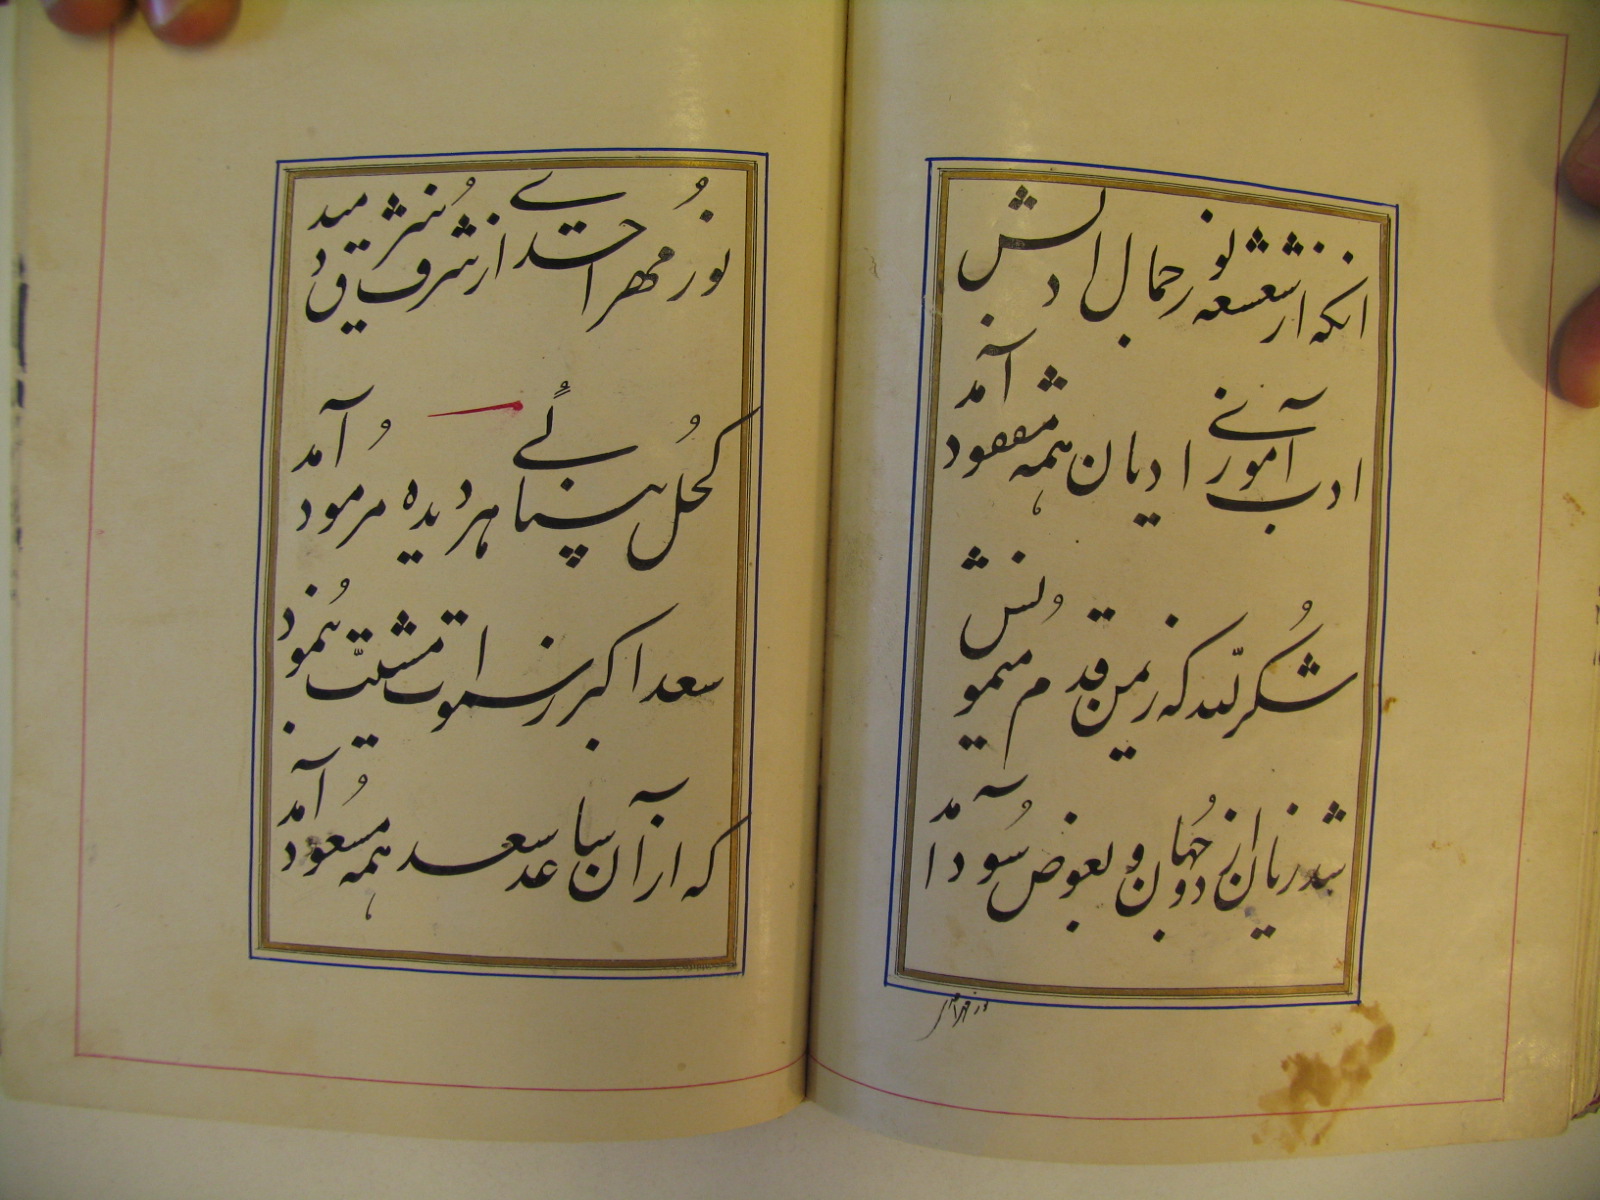 انکه از شعشعه نور جمال ادبش
ادب آموزنے ادیان همه مفقود آمد
شکر لله که زیمن قدم میمونش
شد زیان از دو جهان و بعوض سود آمد
نور مهر احدے از شرف شرق دمید
کحل بینائے هر دیده مرمود آمد
سعد اکبر ز سموات مشیت بنمود
که از آن ساعد سعد همه مسعود آمد
نور مهر احدی